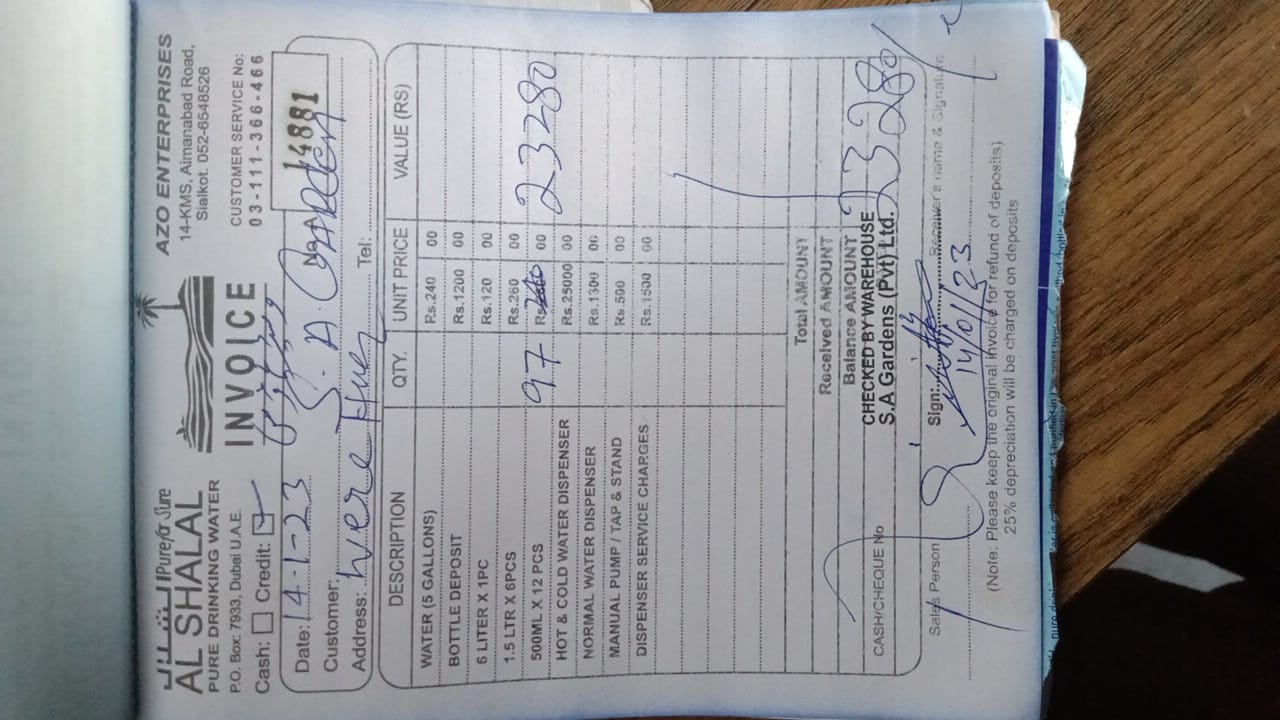 الشلال Pure for Sure
AL SHALAL
PURE DRINKING WATER
P.O. Box: 7933, Dubai U.A.E.
Cash: Credit: ✓
INVOICE
AZO ENTERPRISES
14-KMS, Aimanabad Road,
Sialkot. 052-6548526
CUSTOMER SERVICE No:
03-111-366-466
14881
Date: 14-1-23
Customer: S.A. Garden
Address: were Hues Tel:
DESCRIPTION QTY. UNIT PRICE VALUE (RS)
WATER (5 GALLONS) Rs.240 00
BOTTLE DEPOSIT Rs.1200 00
6 LITER X 1PC Rs.120 00
1.5 LTR X 6PCS Rs.260 00
500ML X 12 PCS 97 Rs. 00 23280
HOT & COLD WATER DISPENSER Rs.25000 00
NORMAL WATER DISPENSER Rs.1300 00
MANUAL PUMP / TAP & STAND Rs.500 00
DISPENSER SERVICE CHARGES Rs.1500 00
Total AMOUNT
Received AMOUNT
Balance AMOUNT 23280/
CHECKED BY WAREHOUSE
S.A Gardens (Pvt) Ltd.
CASH/CHEQUE No
Sales Person
Sign:
14/0/23
Receiver's name & Signature
(Note: Please keep the original invoice for refund of deposits)
25% depreciation will be charged on deposits